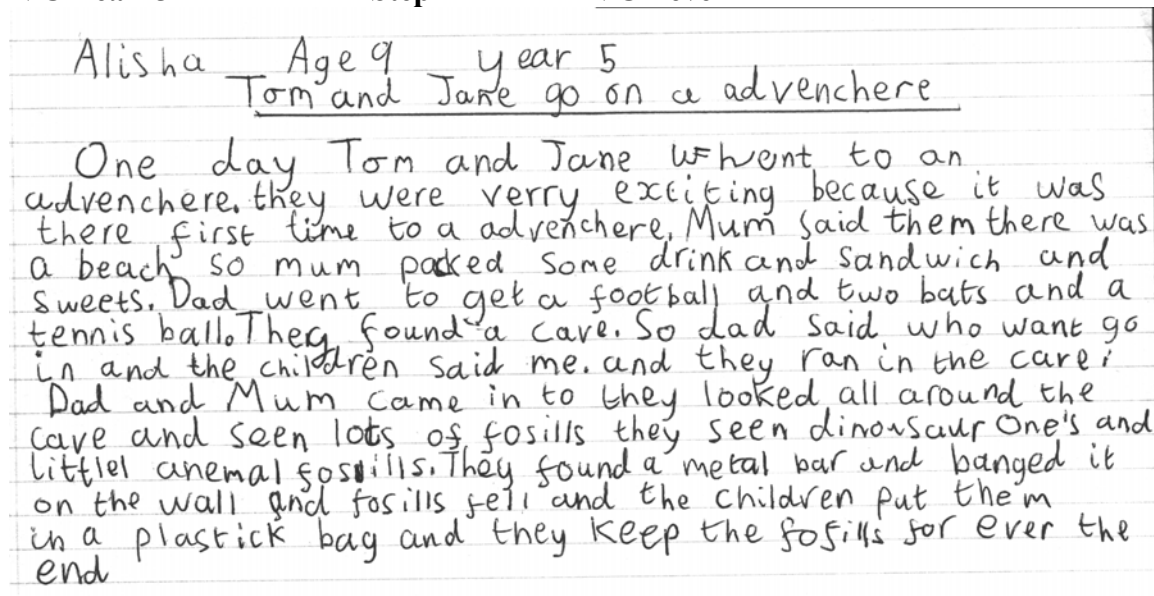 Alisha Age 9 year 5
Tom and Jane go on a advenchere
One day Tom and Jane went to an
advenchere. they were verry exciting because it was
there first time to a advenchere. Mum said them there was
a beach so mum packed some drink and sandwich and
sweets. Dad went to get a football and two bats and a
tennis ball. They found a cave. So dad said who want go
in and the children said me. and they ran in the cave.
Dad and Mum came in to they looked all around the
cave and seen lots of fosills they seen dinousaur one's and
littlel anemal fossills. They found a metal bar and banged it
on the wall and fosills fell and the children put them
in a plastick bag and they keep the fosills for ever the
end